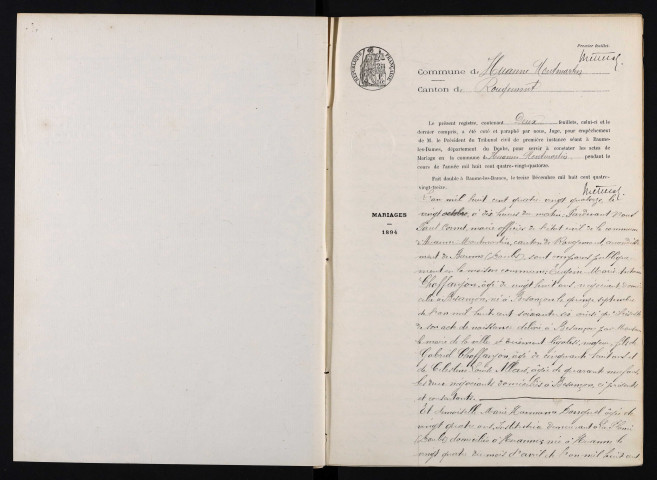 Premier feuillet
Commune de Huanne Montmartin
Canton de Rougemont
Le présent registre, contenant Deux feuillets, celui-ci et le
dernier compris, a été coté et paraphé par nous, Juge, pour empêchement
de M. le Président du Tribunal civil de première instance séant à Baume-
les-Dames, département du Doubs, pour servir à constater les actes de
Mariage en la commune de Huanne Montmartin pendant le
cours de l'année mil huit cent quatre-vingt-quatorze.
Fait double à Baume-les-Dames, le treize Décembre mil huit cent quatre-
vingt-treize.
MARIAGES
1894
L'an mil huit cent quatre vingt quatorze, le
vingt octobre, à dix heures du matin, Pardevant Nous
Paul maire officier de l'état civil de la commune
Huanne Montmartin, canton de Rougemont, arrondisse-
ment de Baume (Doubs), sont comparus publique-
ment en la maison commune, Eugène Marie
Choffardon, âgé de vingt huit ans, négociant
à Besançon, né à Besançon le quinze septembre
de l'an mil huit cent soixante six ainsi
de son acte de naissance délivré à Besançon par Monsieur
le maire de la ville et légalisé, majeur, fils de
Gabriel Choffardon, âgé de cinquante ans et
de Célestine âgée de quarante neuf ans,
les deux négociants domiciliés à Besançon, ci présents
et consentants
Et demoiselle Marie âgée de
vingt quatre ans, institutrice demeurant
(Doubs) domiciliée à Huanne, née à Huanne le
vingt quatre du mois d'avril de l'an mil huit cent